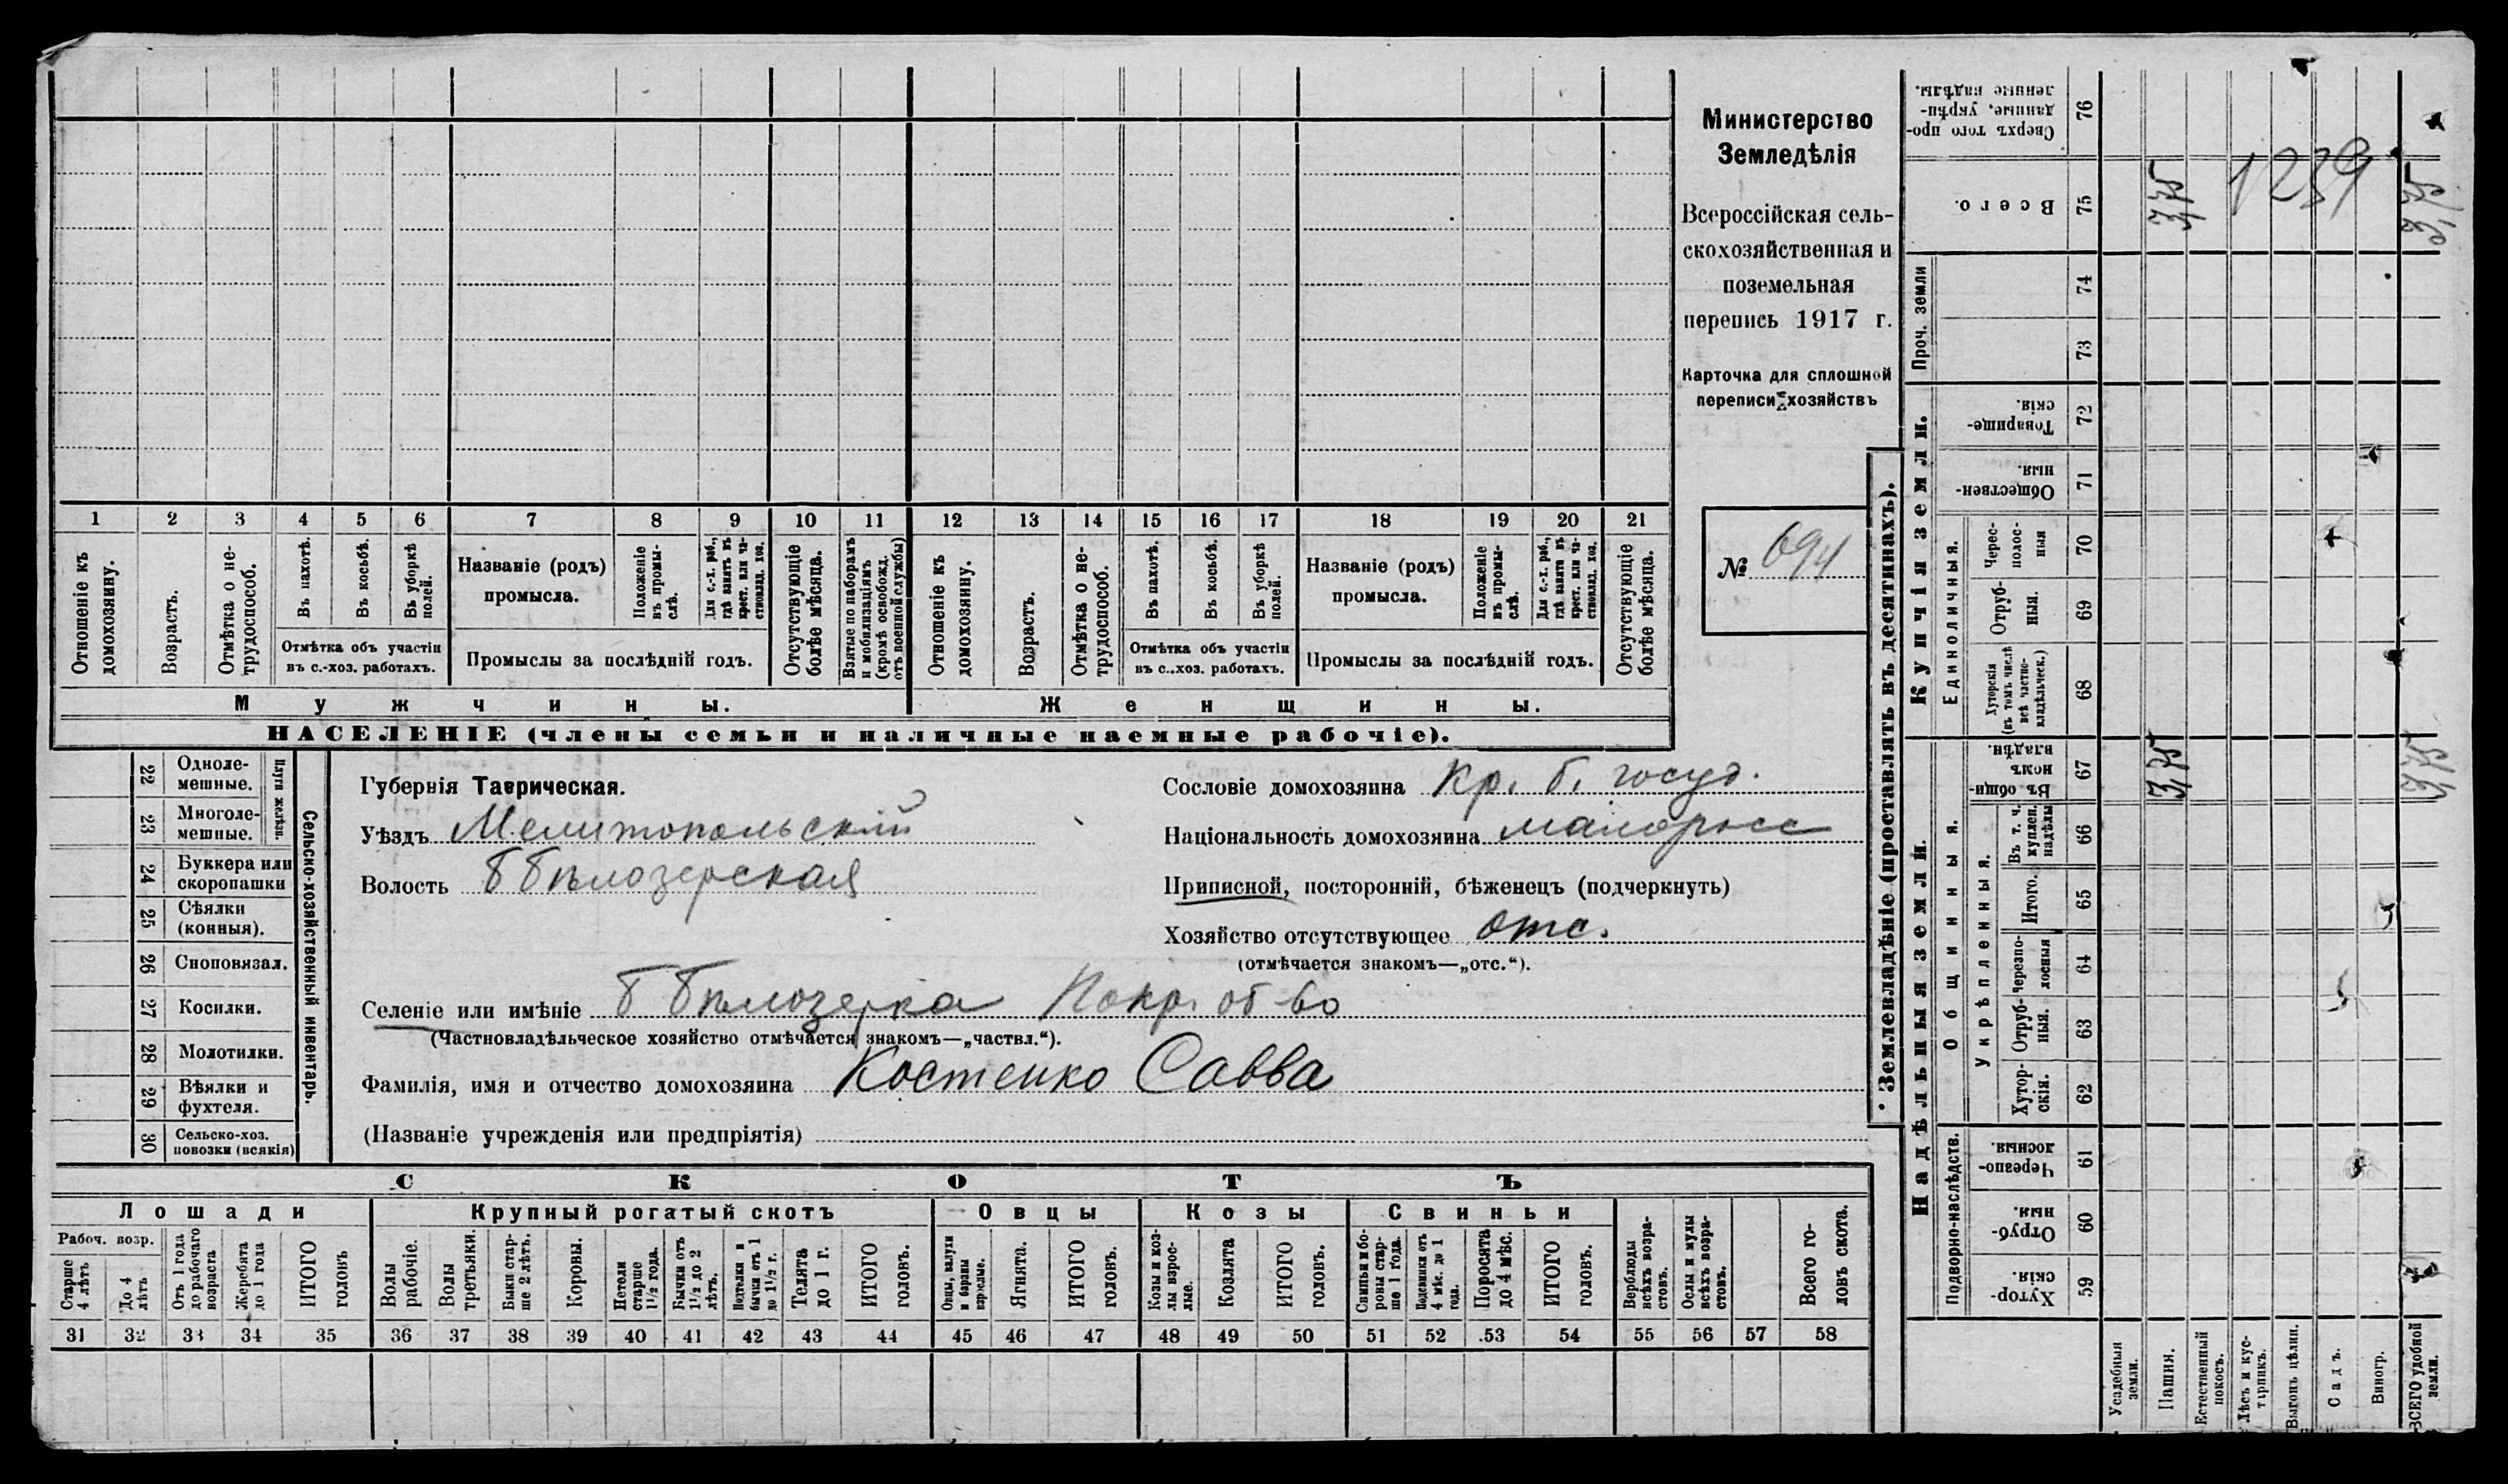 Министерство
Земледѣлія
Всероссійская сель-
скохозяйственная и
поземельная
перепись 1917 г.
Карточка для сплошной
переписи хозяйствъ
№ 694
1 2 3 4 5 6 7 8 9 10 11 12 13 14 15 16 17 18 19 20 21
Отношеніе къ домохозяину.
Возрастъ.
Отмѣтка о не-трудоспособ.
Въ пахотѣ.
Въ косьбѣ.
Въ уборкѣ полей.
Отмѣтка объ участіи
въ с.-хоз. работахъ.
Названіе (родъ)
промысла.
Положеніе въ промы-слѣ.
Для с.-х. раб., гдѣ занятъ въ крест. или ча-стновлад. хоз.
Промыслы за послѣдній годъ.
Отсутствующіе болѣе мѣсяца.
Взятые по наборамъ и мобилизаціямъ (кромѣ освобожд. отъ военной службы)
Отношеніе къ домохозяину.
Возрастъ.
Отмѣтка о не-трудоспособ.
Въ пахотѣ.
Въ косьбѣ.
Въ уборкѣ полей.
Отмѣтка объ участіи
въ с..хоз. работахъ.
Названіе (родъ)
промысла.
Положеніе въ промы-слѣ.
Для с.-х. раб., гдѣ занята въ крест. или ча-стновлад. хоз.
Промыслы за послѣдній годъ.
Отсутствующіе болѣе мѣсяца.
Мужчины. Женщины.
НАСЕЛЕНІЕ (члены семьи и наличные наемные рабочіе).
Сельско-хозяйственный инвентарь.
Плуги желѣзн.
22 Однолемешные.
23 Многолемешные.
24 Буккера или скоропашки
25 Сѣялки (конныя).
26 Сноповязал.
27 Косилки.
28 Молотилки.
29 Вѣялки и фухтеля.
30 Сельско-хоз. повозки (всякія)
Губернія Таврическая.
Уѣздъ Мелитопольский
Волость Б Бѣлозерская
Сословіе домохозяина Кр. б. госуд.
Національность домохозяина малоросс
Приписной, посторонній, бѣженец (подчеркнуть)
Хозяйство отсутствующее отс.
(отмѣчается знакомъ—„отс.“).
Селеніе или имѣніе Б Бѣлозерка Покр. об-во
(Частновладѣльческое хозяйство отмѣчается знакомъ—„частвл.“).
Фамилія, имя и отчество домохозяина Костенко Савва
(Названіе учрежденія или предпріятія)
СКОТЪ
Лошади Крупный рогатый скотъ Овцы Козы Свиньи
Рабоч. возр.
Старше 4 лѣтъ
До 4 лѣтъ
Отъ 1 года до рабочаго возраста
Жеребята до 1 года
ИТОГО головъ
Волы рабочіе.
Волы третьяки.
Быки стар-ше 2 лѣтъ.
Коровы.
Нетели старше 1½ года.
Бычки отъ 1½ до 2 лѣтъ.
Подтелки и бычки отъ 1 до 1½ г.
Телята до 1 г.
ИТОГО головъ.
Овцы, валухи и бараны взрослые.
Ягнята.
ИТОГО головъ.
Козы и коз-лы взрос-лые.
Козлята
ИТОГО головъ.
Свиньи и бо-ровы стар-ше 1 года.
Подсвинки отъ 4 мѣс. до 1 года.
Поросята до 4 мѣс.
ИТОГО головъ.
Верблюды всѣхъ возра-стовъ.
Ослы и мулы всѣхъ возра-стовъ.
Всего го-ловъ скота.
31 32 33 34 35 36 37 38 39 40 41 42 43 44 45 46 47 48 49 50 51 52 53 54 55 56 57 58
Землевладѣніе (проставлять въ десятинахъ).
Надѣльныя земли.
Подворно-наслѣдств.
59 Хутор-скія.
60 Отруб-ныя.
61 Черезпо-лосныя.
Общинныя.
Укрѣпленныя.
62 Хутор-скія.
63 Отруб-ныя.
64 Черезпо-лосныя
65 Итого.
66 Въ т. ч. куплен. надѣлы
67 Въ общи-номъ владѣн.
Купчія земли.
Единоличныя.
68 Хуторскія (въ томъ числѣ всѣ частно-владѣльческ.)
69 Отруб-ныя.
70 Черес-полос-ныя
71 Обществен-ныя.
72 Товарище-скія.
Проч. земли
73 74
75 Всего.
76 Сверхъ того про-данные, укрѣп-ленные надѣлы.
Усадебныя земли.
Пашня. 3,75 3,75
Естественный покосъ.
Лѣсъ и кус-тарникъ.
Выгонъ цѣлин.
Садъ.
Виногр.
ВСЕГО удобной земли. 3,75 3,75
1239